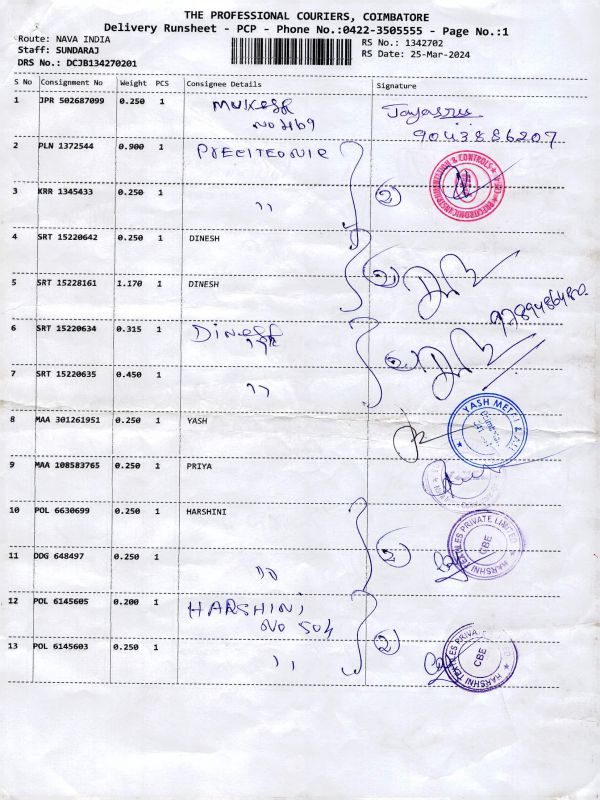 THE PROFESSIONAL COURIERS, COIMBATORE
Delivery Runsheet - PCP - Phone No.:0422-3505555 - Page No.:1
Route: NAVA INDIA
RS No.: 1342702
Staff: SUNDARAJ
RS Date: 25-Mar-2024
DRS No.: DCJB134270201
S No Consignment No Weight PCS Consignee Details Signature
1 JPR 502687099 0.250 1 MUKESH
NO 2169
9043886207
2 PLN 1372544 0.900 1
3 KRR 1345433 0.250 1 ,, 2)
4 SRT 15220642 0.250 1 DINESH
5 SRT 15228161 1.170 1 DINESH 2)
6 SRT 15220634 0.315 1 DINESH
7 SRT 15220635 0.450 1 ,, 2)
8 MAA 301261951 0.250 1 YASH
YASH
9 MAA 108583765 0.250 1 PRIYA
10 POL 6630699 0.250 1 HARSHINI
11 DDG 648497 0.250 1 ,, 2)
HARSHNI TEXTILES PRIVATE LIMITED
CBE
12 POL 6145605 0.200 1 HARSHINI
NO 504
13 POL 6145603 0.250 1 ,, 2)
HARSHNI TEXTILES PRIVATE
CBE